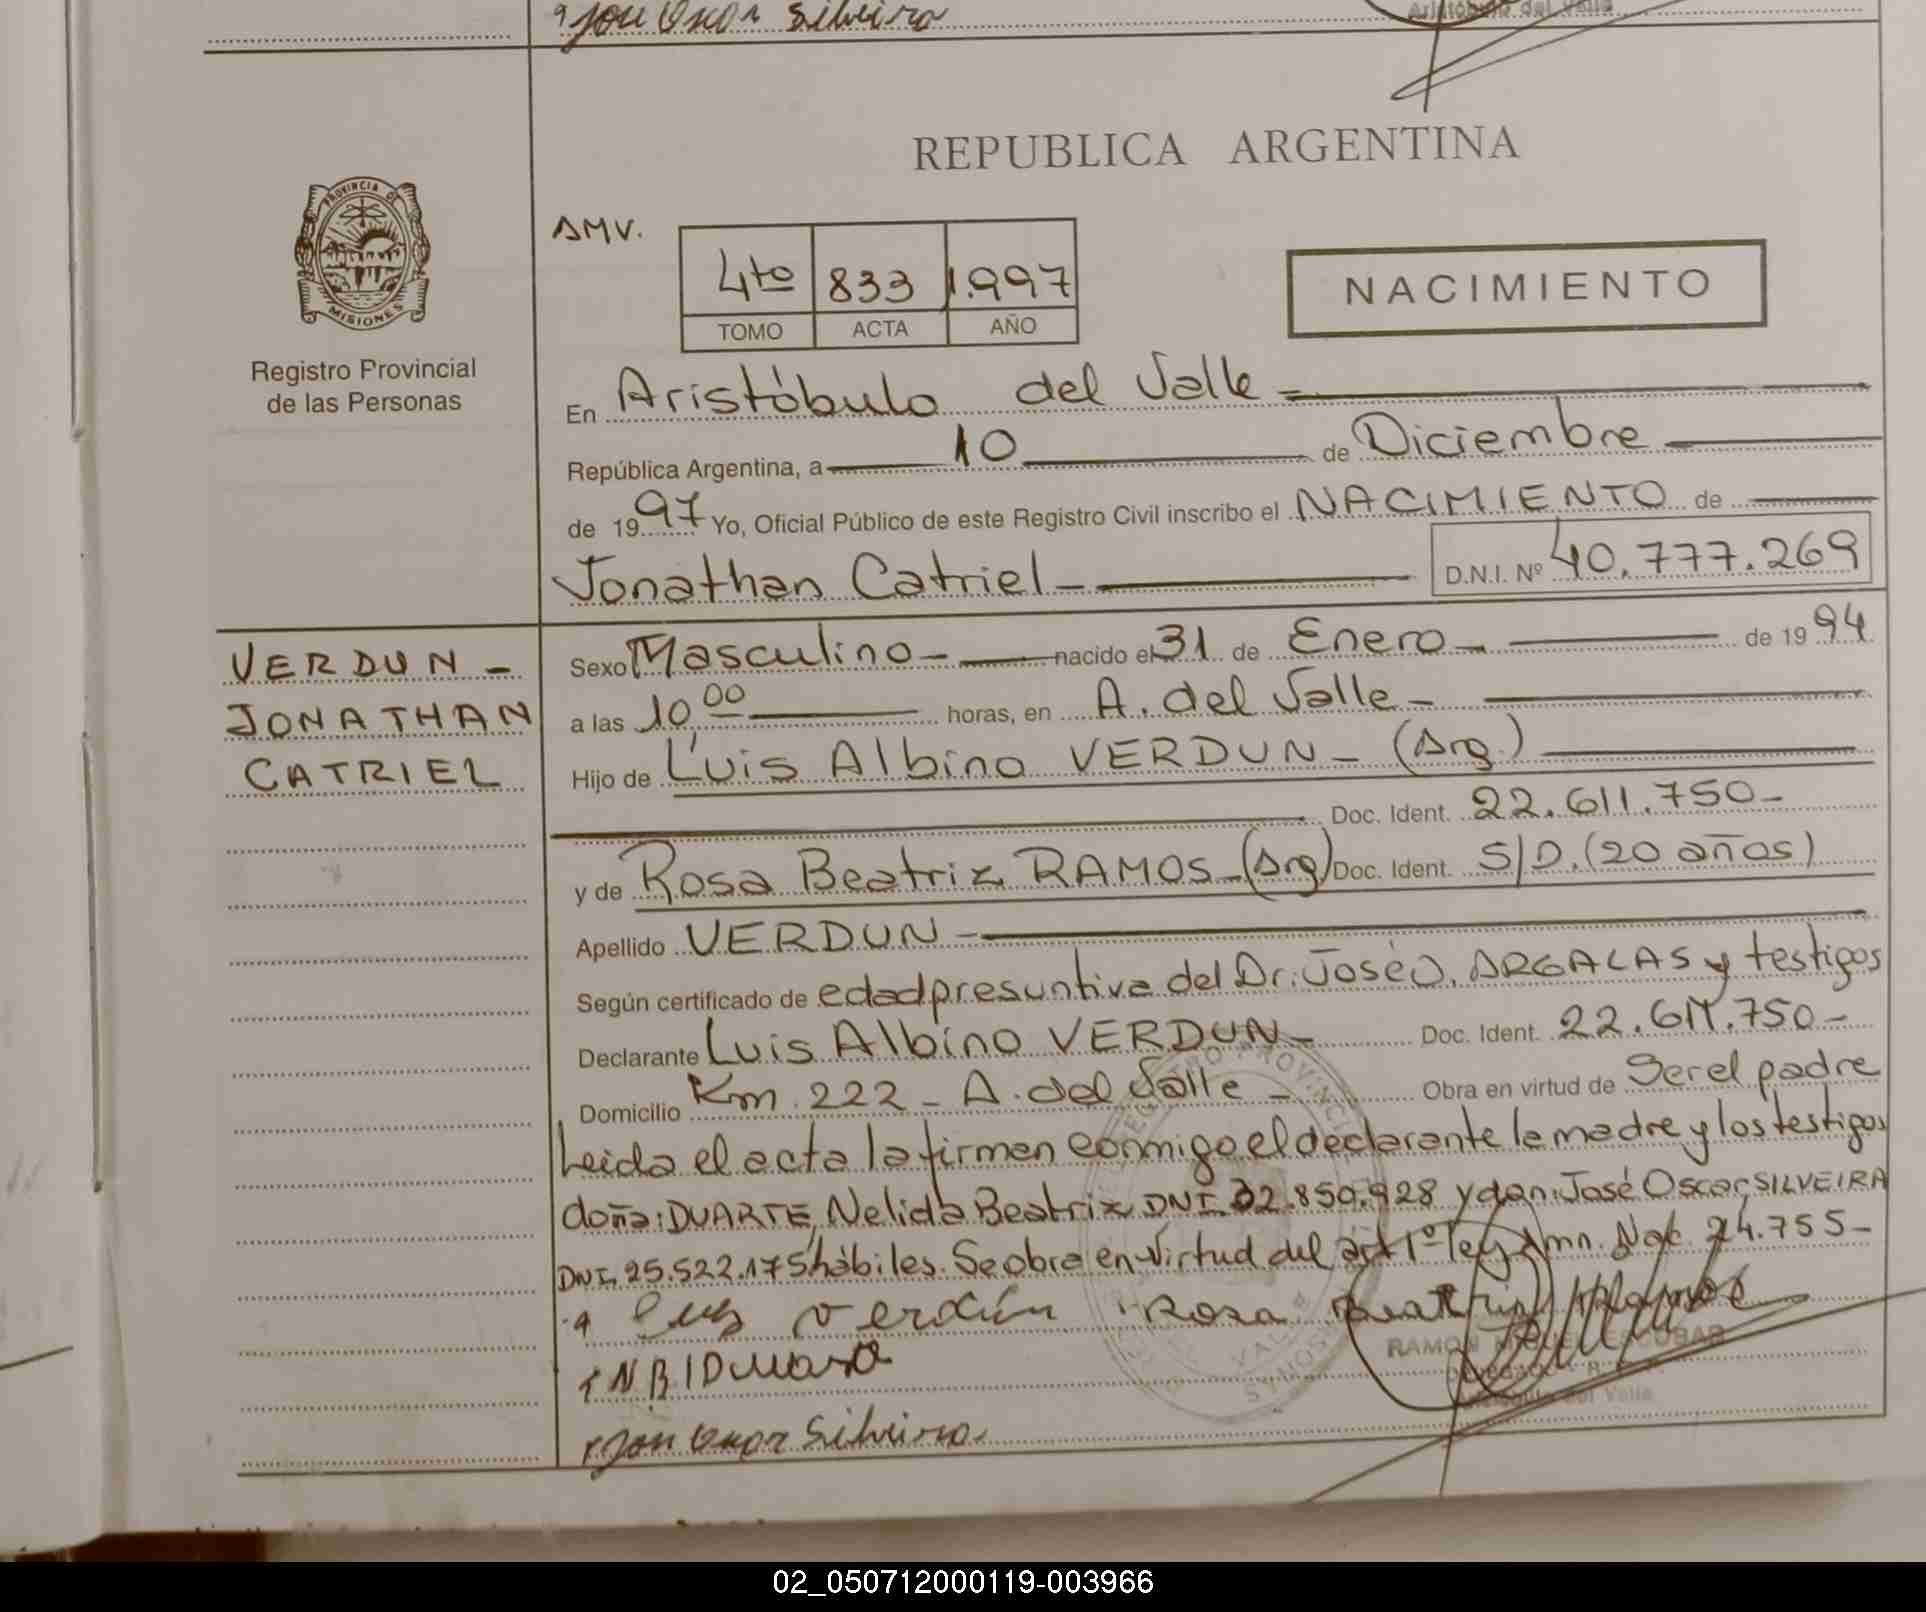 José Oscar Silveira
Aristóbulo del Valle
REPUBLICA ARGENTINA
PROVINCIA DE
MISIONES
Registro Provincial
de las Personas
AMV.
4to 833 1.997
TOMO ACTA AÑO
NACIMIENTO
En Aristóbulo del Valle
República Argentina, a 10 de Diciembre
de 1997 Yo, Oficial Público de este Registro Civil inscribo el NACIMIENTO de
Jonathan Catriel D.N.I. Nº 40.777.269
VERDUN -
JONATHAN
CATRIEL
Sexo Masculino - nacido el 31 de Enero - de 1994
a las 10,00 horas, en A. del Valle -
Hijo de Luis Albino VERDUN - (Arg.)
Doc. Ident. 22.611.750-
y de Rosa Beatriz RAMOS - (Arg) Doc. Ident. S/D. (20 años)
Apellido VERDUN -
Según certificado de edad presuntiva del Dr. José O. ARGALAS y testigos
Declarante Luis Albino VERDUN - Doc. Ident. 22.611.750-
Domicilio Km 222 - A. del Valle - Obra en virtud de Ser el padre
Leida el acta la firman conmigo el declarante la madre y los testigos
doña: DUARTE, Nelida Beatriz DNI. 32.850.928 y don: José Oscar SILVEIRA
DNI. 25.522.175 hábiles. Se obra en virtud del art 1º ley Amn. Nac. 24.755-
Luis Verdún Rosa Beatriz Ramos
RAMON ESCOBAR
DELEGADO
Aristóbulo del Valle
José Oscar Silveira
02_050712000119-003966